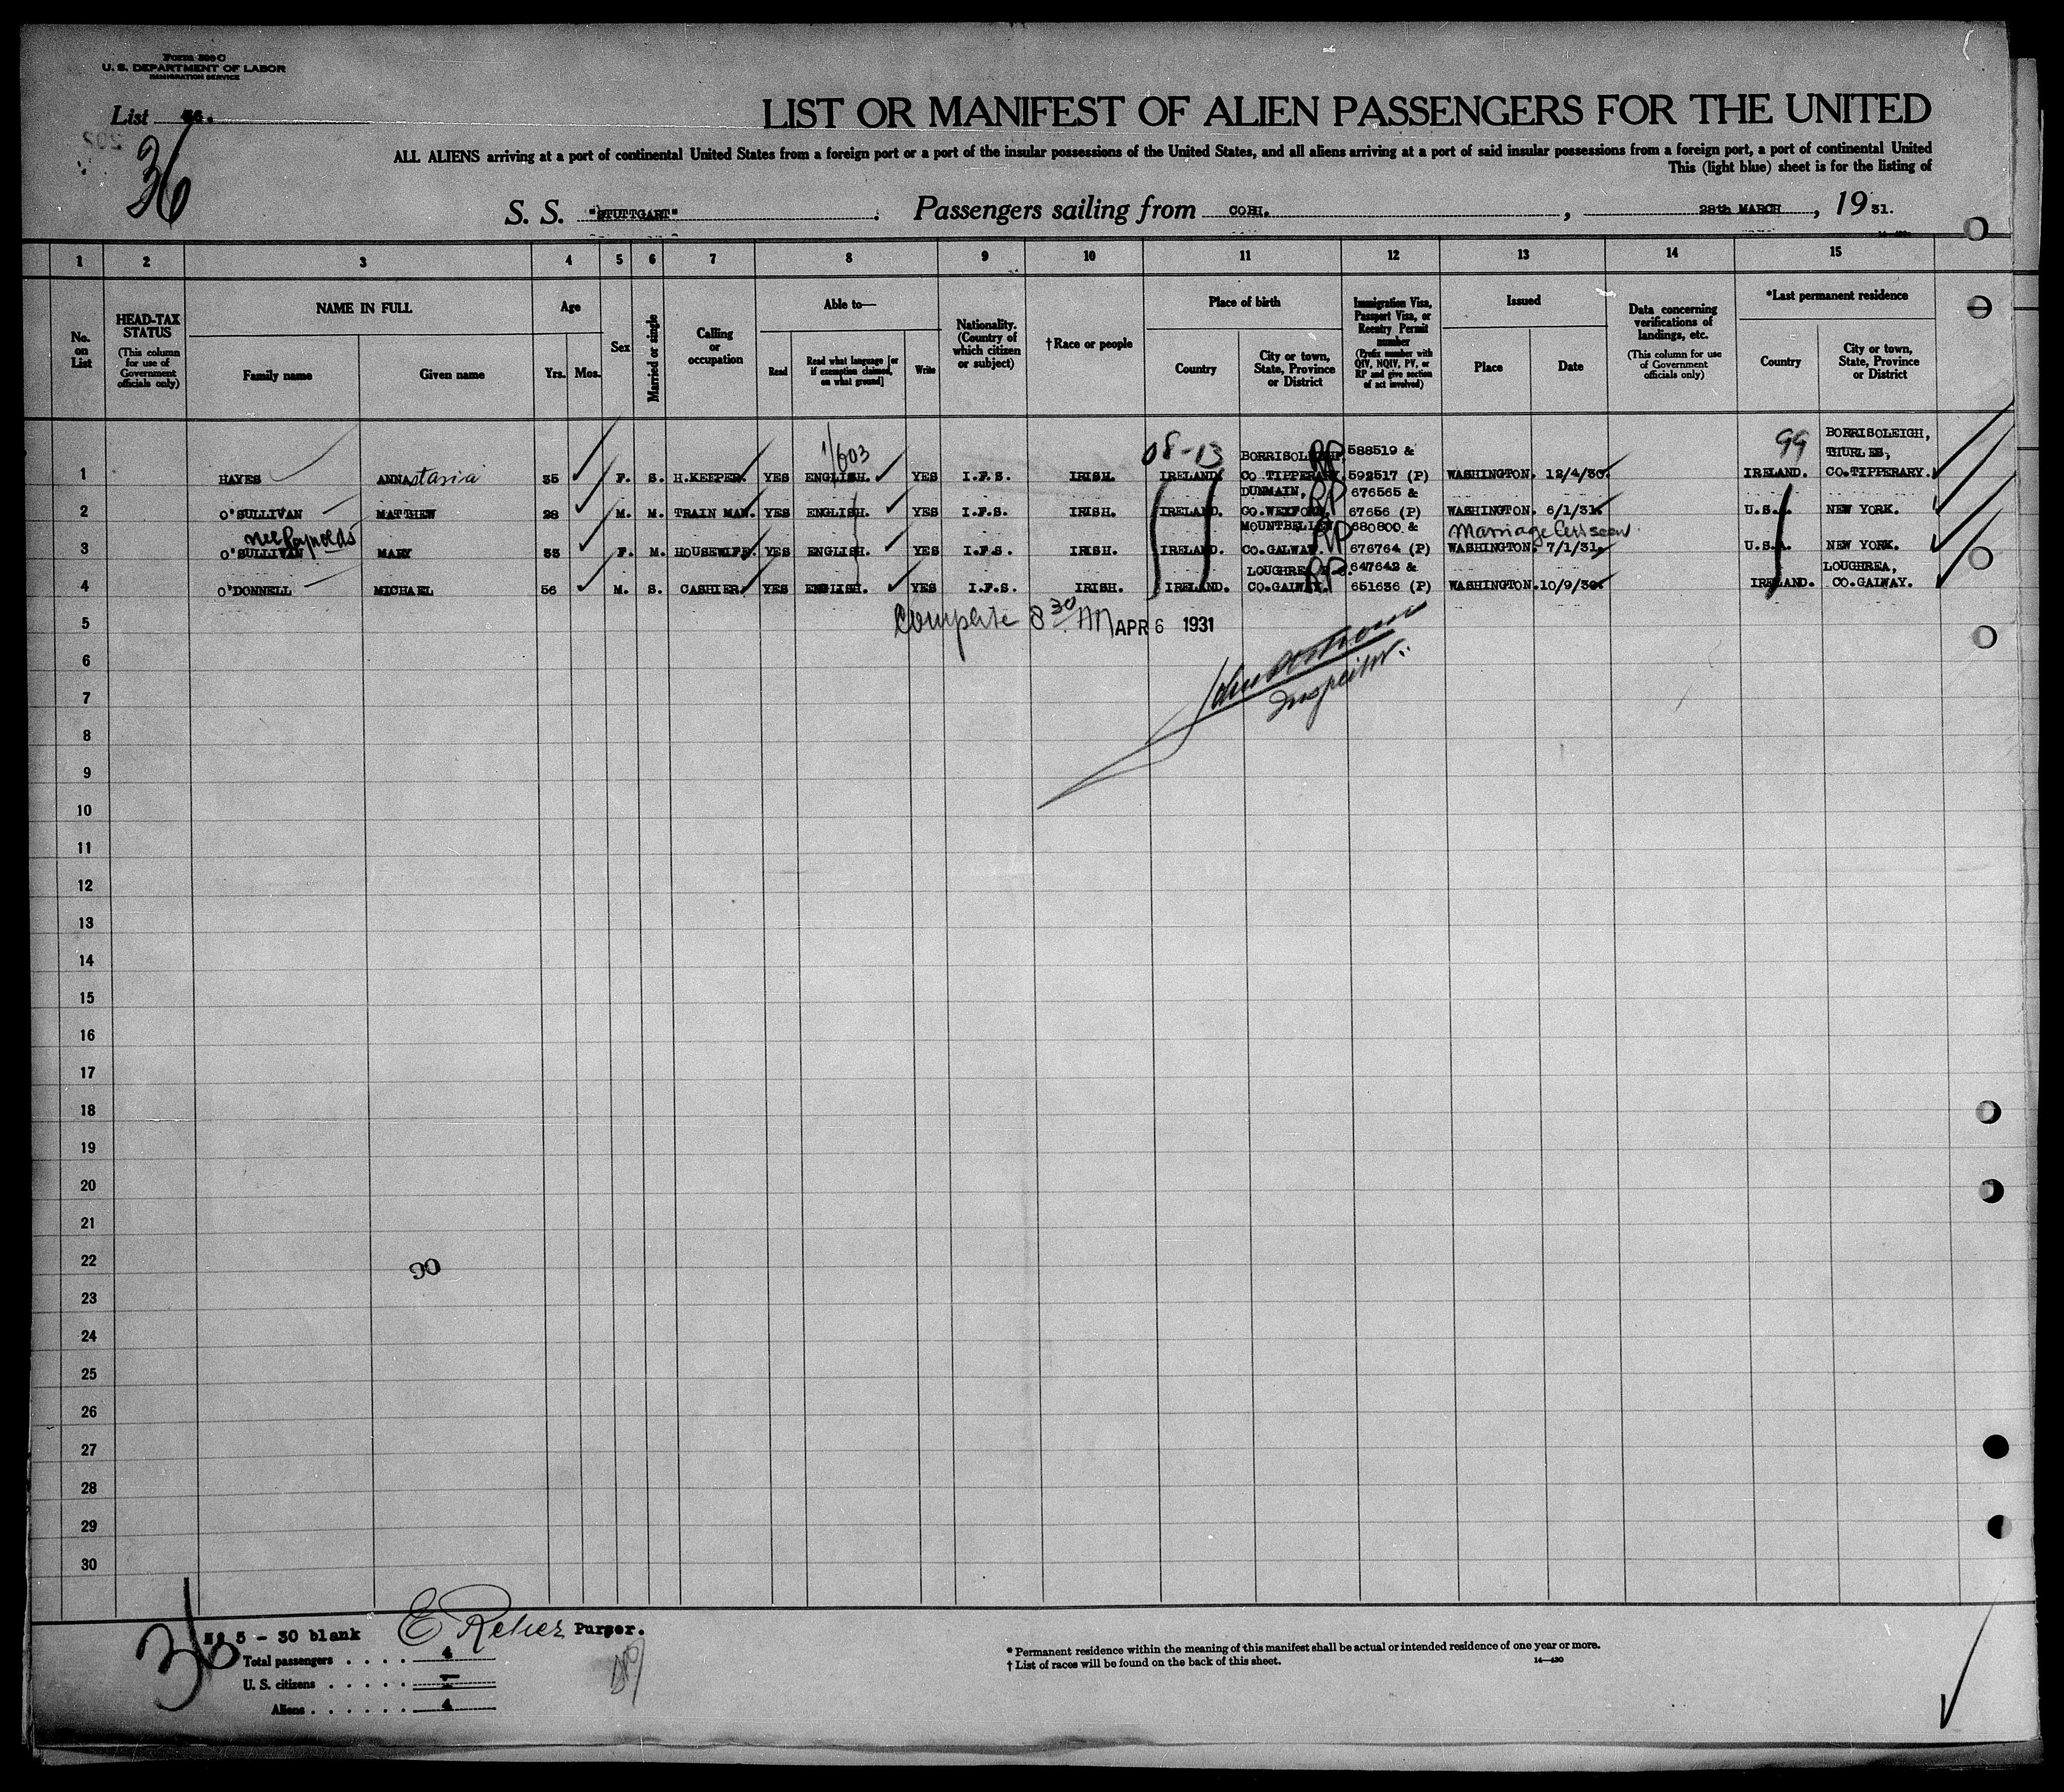 Form 500 C
U. S. DEPARTMENT OF LABOR
IMMIGRATION SERVICE
List 36.
36
LIST OR MANIFEST OF ALIEN PASSENGERS FOR THE UNITED
ALL ALIENS arriving at a port of continental United States from a foreign port or a port of the insular possessions of the United States, and all aliens arriving at a port of said insular possessions from a foreign port, a port of continental United
This (light blue) sheet is for the listing of
S. S. "STUTTGART". Passengers sailing from COBH. , 28th MARCH , 19 31.
1 2 3 4 5 6 7 8 9 10 11 12 13 14 15
No. on List
HEAD-TAX STATUS (This column for use of Government officials only)
NAME IN FULL
Family name
Given name
Age
Yrs. Mos.
Sex
Married or single
Calling or occupation
Able to—
Read
Read what language [or if exemption claimed, on what ground]
Write
Nationality. (Country of which citizen or subject)
†Race or people
Place of birth
Country
City or town, State, Province or District
Immigration Visa, Passport Visa, or Reentry Permit number (Prefix number with QIV, NQIV, PV, or RP and give section of act involved)
Issued
Place
Date
Data concerning verifications of landings, etc. (This column for use of Government officials only)
*Last permanent residence
Country
City or town, State, Province or District
1/603
08-13
99
BORRISOLEIGH,
BORRISOLEIGH. RP 588519 & THURLES,
1 HAYES ANNAstasia 35 F. S. H.KEEPER. YES ENGLISH. YES I.F.S. IRISH. IRELAND. CO.TIPPERARY. 592517 (P) WASHINGTON. 12/4/30. IRELAND. CO.TIPPERARY.
DUNMAIN, RP 676565 &
2 O'SULLIVAN MATTHEW 28 M. M. TRAIN MAN. YES ENGLISH. YES I.F.S. IRISH. IRELAND. CO.WEXFORD. 67656 (P) WASHINGTON. 6/1/31. U.S.A. NEW YORK.
nee Reynolds MOUNTBELLEW, RP 680800 & Marriage Cert seen
3 O'SULLIVAN MARY 33 F. M. HOUSEWIFE. YES ENGLISH. YES I.F.S. IRISH. IRELAND. CO.GALWAY. 676764 (P) WASHINGTON. 7/1/31. U.S.A. NEW YORK.
LOUGHREA RP 647642 & LOUGHREA,
4 O'DONNELL MICHAEL 56 M. S. CASHIER. YES ENGLISH. YES I.F.S. IRISH. IRELAND. CO.GALWAY. 651636 (P) WASHINGTON. 10/9/30. IRELAND. CO.GALWAY.
5 Complete 8 30 AM APR 6 1931
6
7 Inspector.
8
9
10
11
12
13
14
15
16
17
18
19
20
21
22
23
24
25
26
27
28
29
30
36
No 5 - 30 blank E Reher Purser.
Total passengers . . . . 4
U. S. citizens . . . . . . -
Aliens . . . . . . . 4
* Permanent residence within the meaning of this manifest shall be actual or intended residence of one year or more.
† List of races will be found on the back of this sheet.
14—430